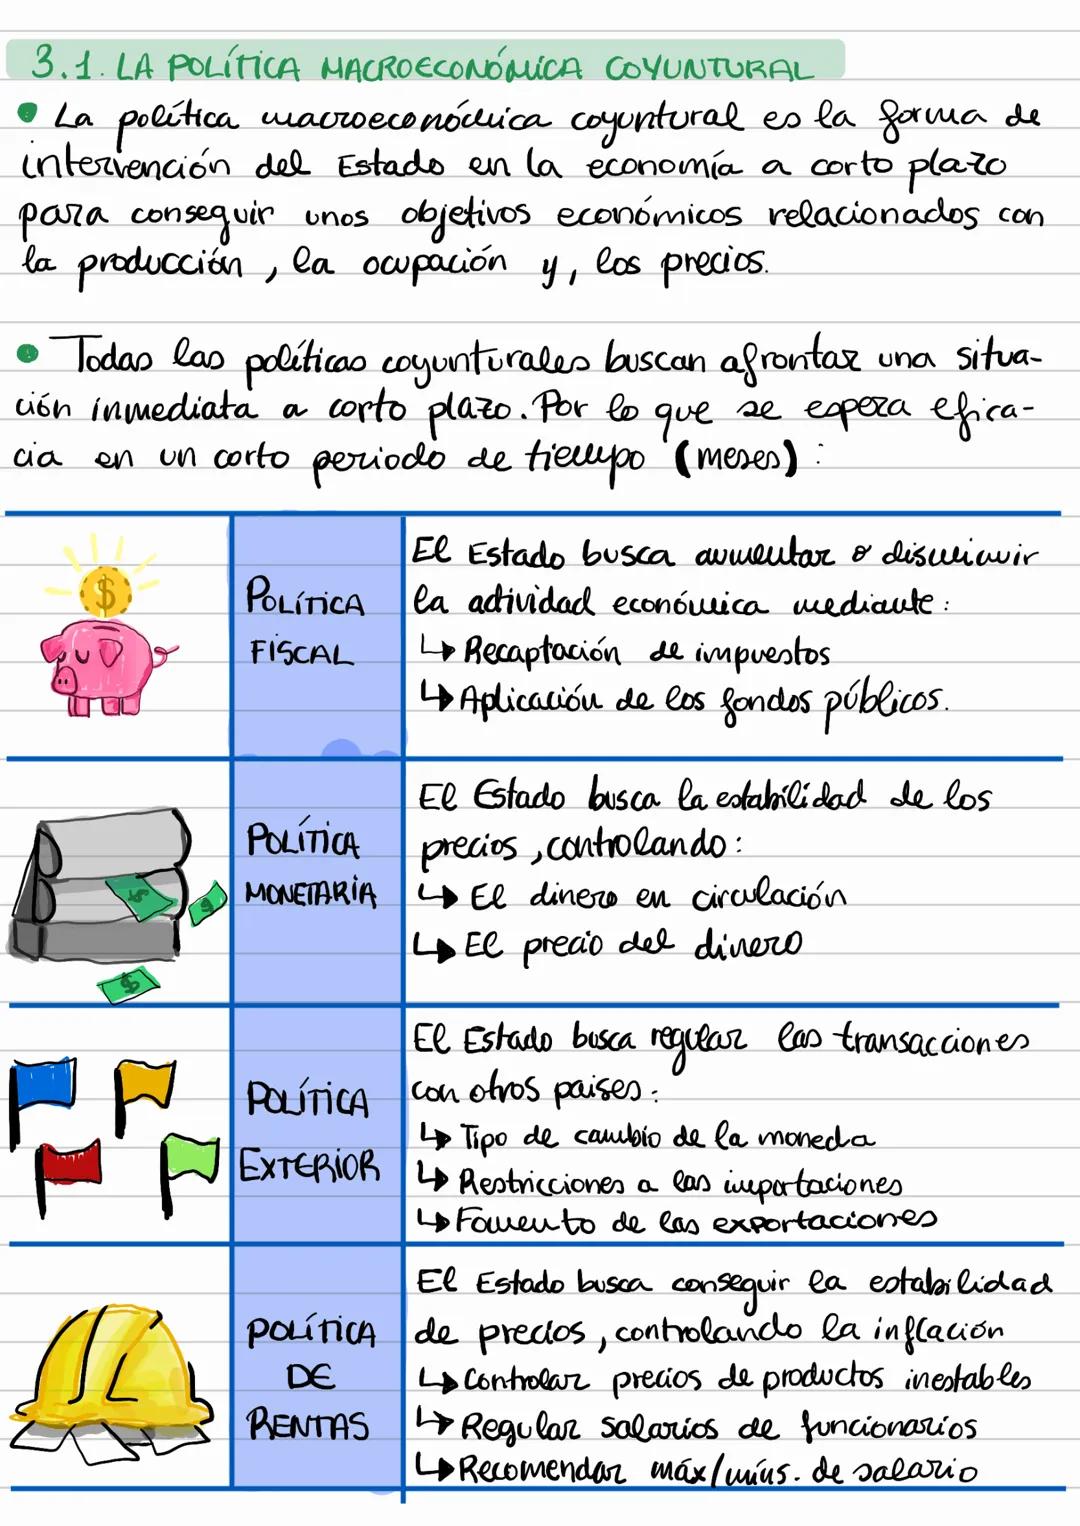 3.1. LA POLÍTICA MACROECONÓMICA COYUNTURAL
• La política macroeconómica coyuntural es la forma de
intervención del Estado en la economía a corto plazo
para conseguir unos objetivos económicos relacionados con
la producción, la ocupación y, los precios.
• Todas las políticas coyunturales buscan afrontar una situa-
ción inmediata a corto plazo. Por lo que se espera efica-
cia en un corto periodo de tiempo (meses):
$
POLÍTICA
FISCAL
El Estado busca aumentar o disminuir
la actividad económica mediante:
↳ Recaptación de impuestos
↳ Aplicación de los fondos públicos.
$
$
$
POLÍTICA
MONETARIA
El Estado busca la estabilidad de los
precios, controlando:
↳ El dinero en circulación
↳ El precio del dinero
POLÍTICA
EXTERIOR
El Estado busca regular las transacciones
con otros paises:
↳ Tipo de cambio de la moneda
↳ Restricciones a las importaciones
↳ Fomento de las exportaciones
POLÍTICA
DE
RENTAS
El Estado busca conseguir la estabilidad
de precios, controlando la inflación
↳ Controlar precios de productos inestables
↳ Regular salarios de funcionarios
↳ Recomendar máx/míns. de salario